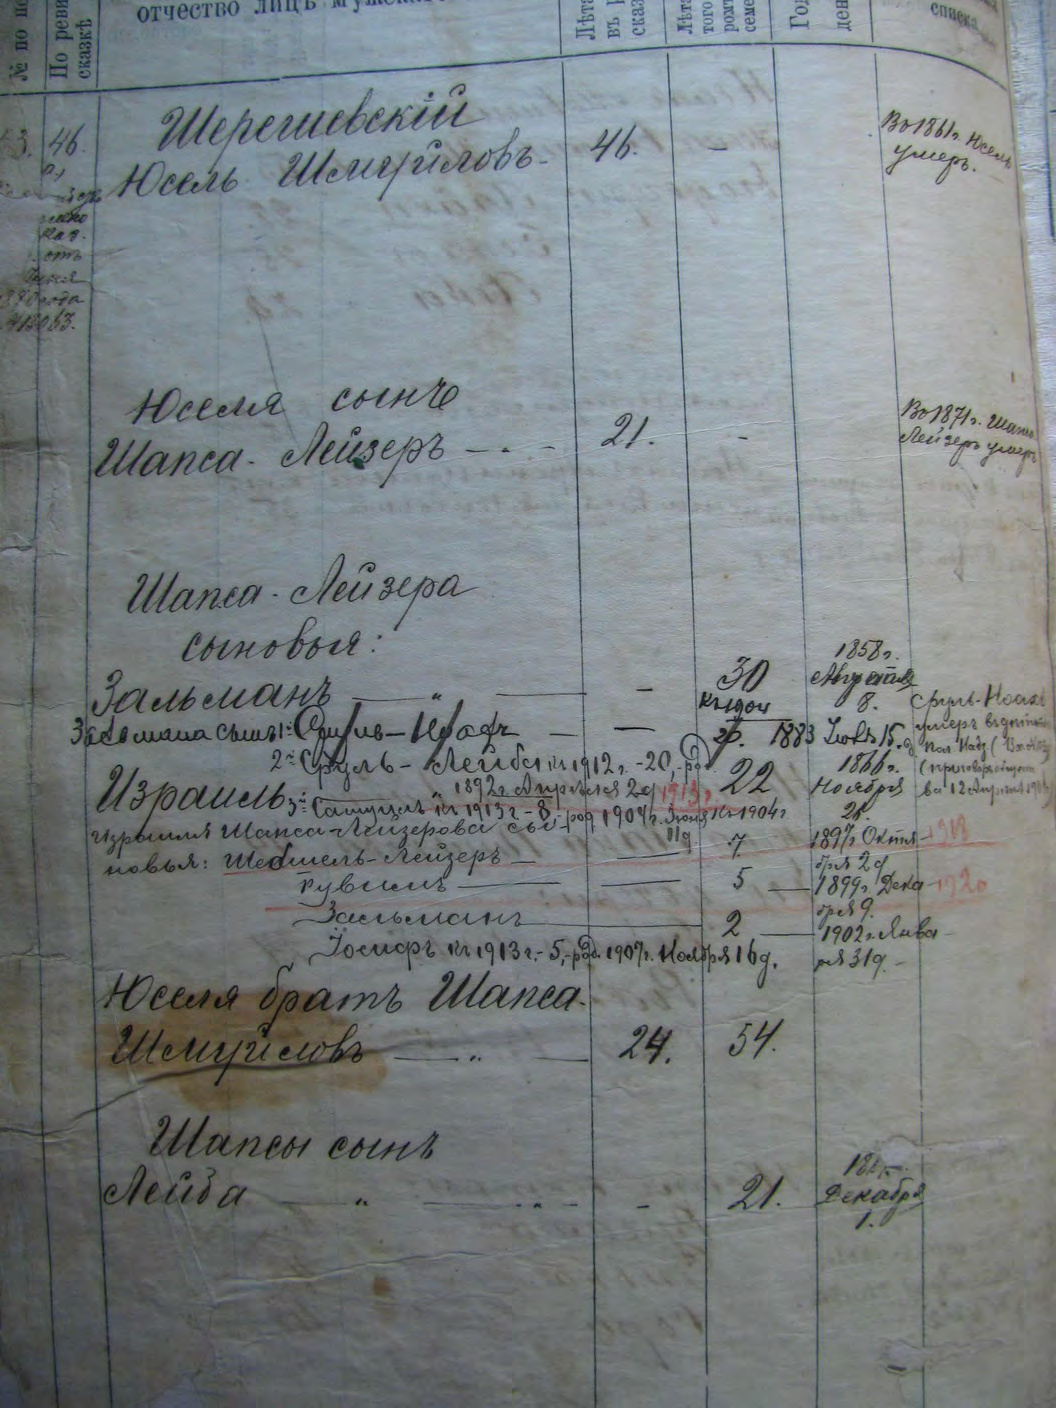 № по
По реви
сказкѣ
отчество лицъ мужского
Лѣта
въ
сказ
Лѣта
того
семе
Го
ден
списка
46.
Шерешевскій
Юсель Шмуйловъ - 46. -
Во 1861 г. Юсель
умеръ.
Юселя сынъ
Шапса-Лейзеръ 21. -
Во 1871 г. Шапса
Лейзеръ умеръ
Шапса-Лейзера
сыновья:
Зальманъ — „ — - 30
1858 г.
Августа
8.
Зальмана сынъ 1й Сруль-Ноахъ — — 1883 Іюля 15.
Сруль-Ноахъ
умеръ
2й Сруль-Лейба къ 1912 г. - 20, род.
1892 г. Апрѣля 2 д. 1913 г.
Израиль „ 22
1866 г.
Ноября
21.
3й Самуилъ къ 1913 г. - 8, род. 1904 г. Іюня
11 д.
къ 1904 г.
Израиля Шапса-Лейзерова сы-
новья: Шебшель-Лейзеръ — — 7 1897 г. Октя-
бря 2 д. 1918
Рувинъ — — 5 — 1899 г. Дека-
бря 9. 1920
Зальманъ — 2 — 1902 г. Янва-
ря 31 д. -
Іосифъ къ 1913 г. - 5, род. 1907 г. Ноября 16 д.
Юселя братъ Шапса
Шмуйловъ — „ — 24. 54.
Шапсы сынъ
Лейба — „ — - 21.
Декабря
1.